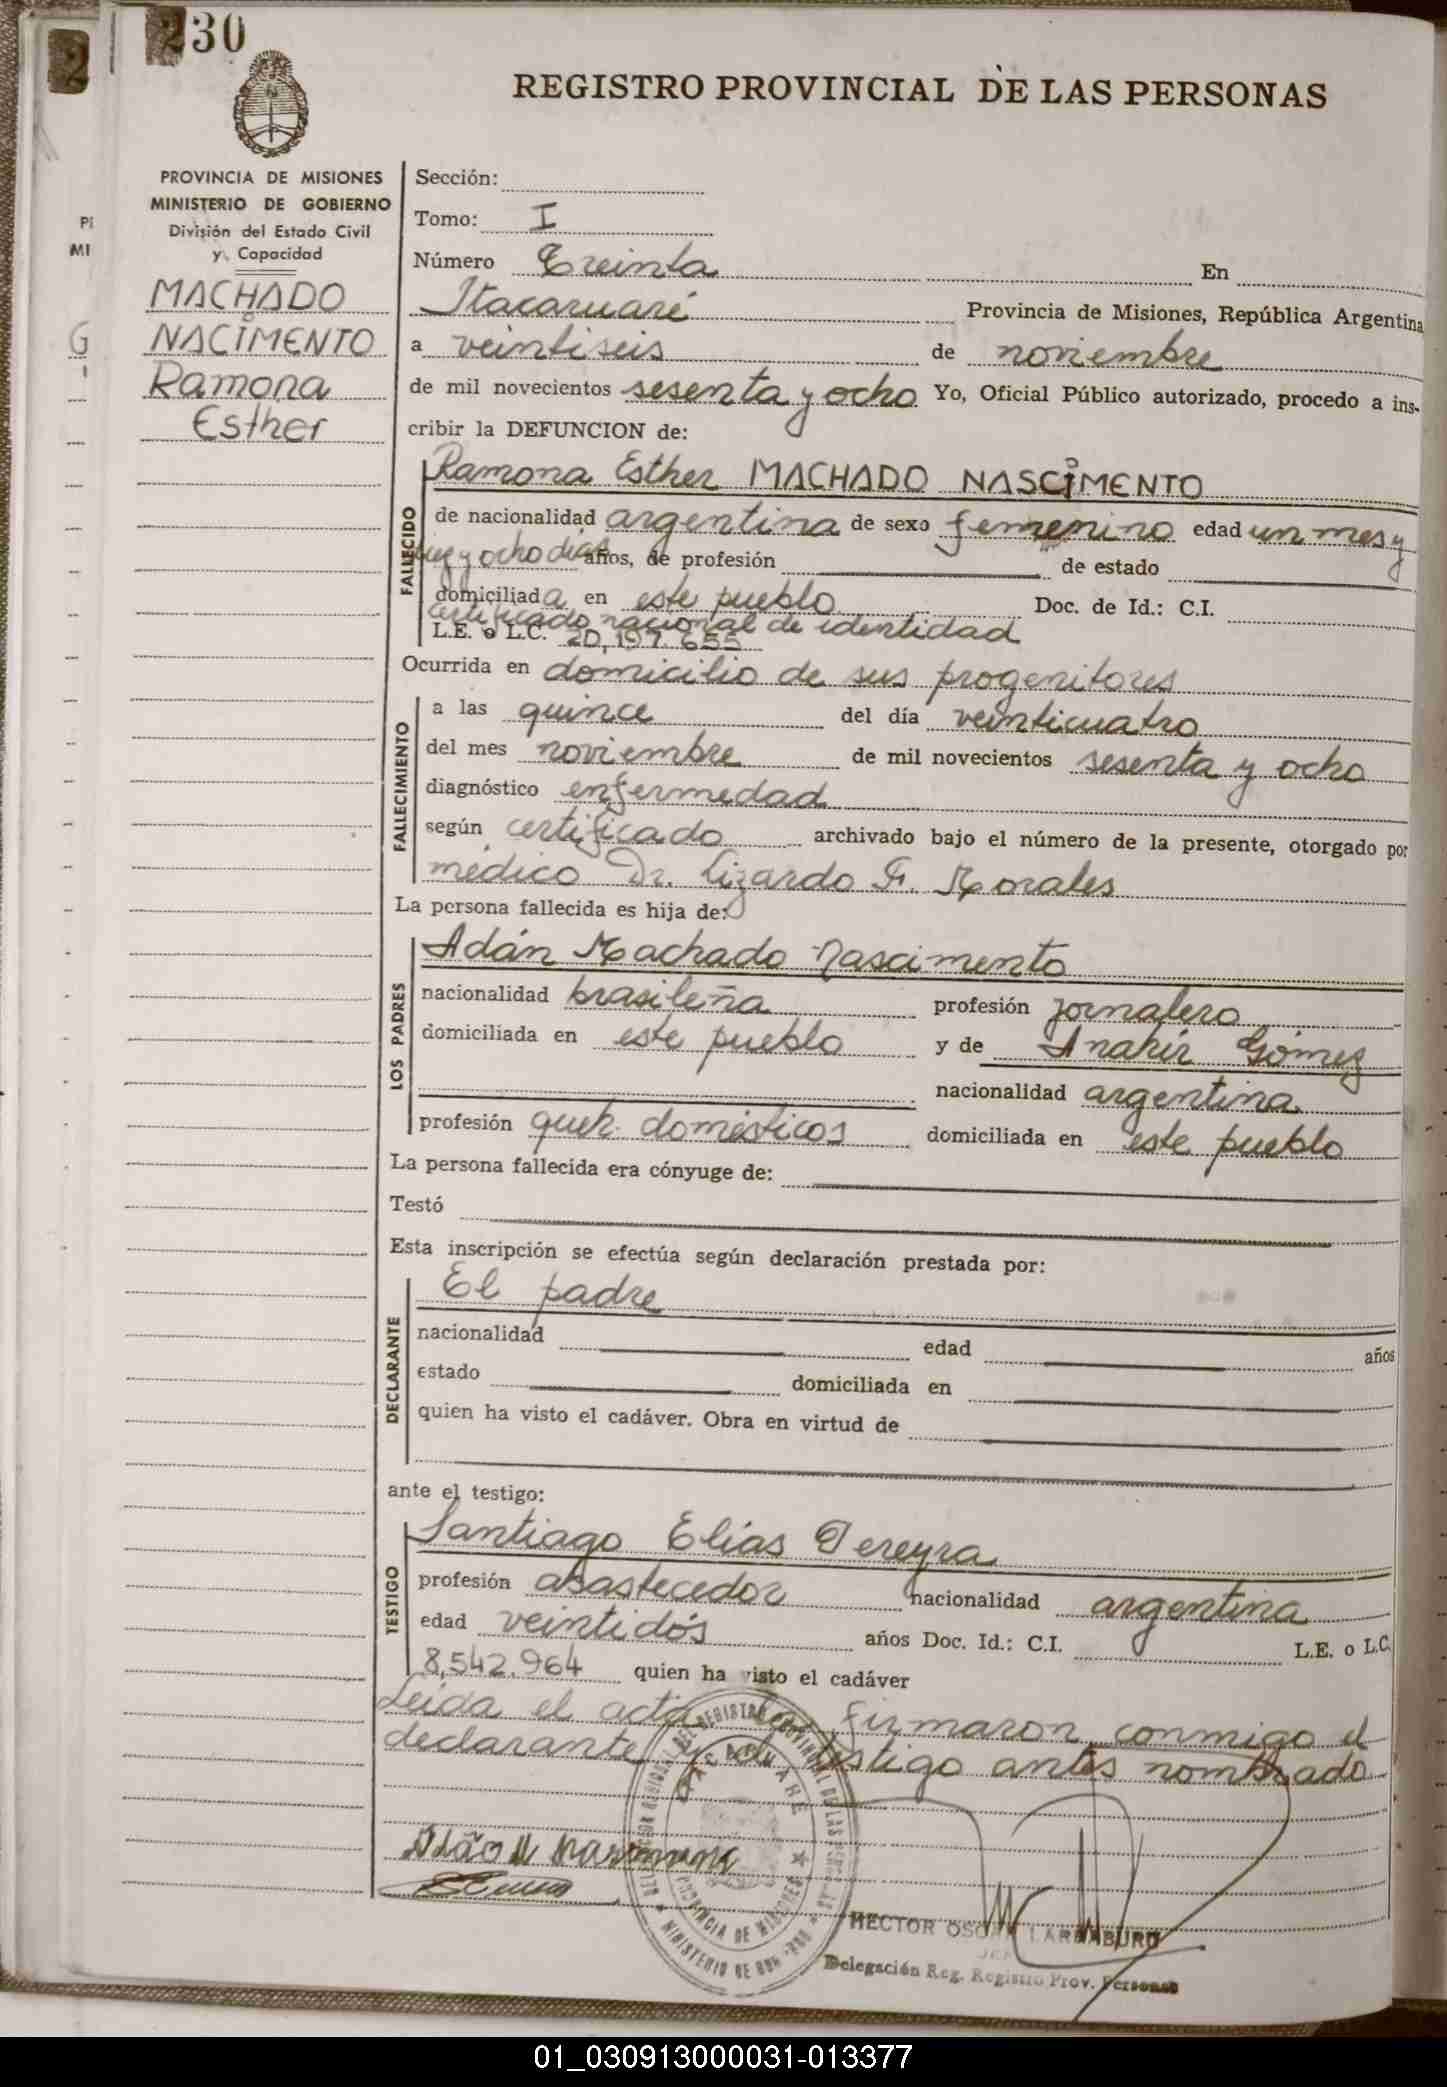 230
REGISTRO PROVINCIAL DE LAS PERSONAS
PROVINCIA DE MISIONES
MINISTERIO DE GOBIERNO
División del Estado Civil
y Capacidad
MACHADO
NACIMENTO
Ramona
Esther
Sección:
Tomo: I
Número Treinta En
Itacaruaré Provincia de Misiones, República Argentina
a veintiseis de noviembre
de mil novecientos sesenta y ocho Yo, Oficial Público autorizado, procedo a ins-
cribir la DEFUNCION de:
FALLECIDO
Ramona Esther MACHADO NASCIMENTO
de nacionalidad argentina de sexo femenino edad un mes y
diez y ocho días años, de profesión de estado
domiciliada en este pueblo Doc. de Id.: C.I.
certificado nacional de identidad
L.E. o L.C. 20,197.655
Ocurrida en domicilio de sus progenitores
FALLECIMIENTO
a las quince del día veinticuatro
del mes noviembre de mil novecientos sesenta y ocho
diagnóstico enfermedad
según certificado archivado bajo el número de la presente, otorgado por
médico Dr. Lizardo F. Morales
La persona fallecida es hija de:
LOS PADRES
Adán Machado Nascimento
nacionalidad brasileña profesión jornalero
domiciliada en este pueblo y de Anahir Gómez
nacionalidad argentina
profesión queh. domésticos domiciliada en este pueblo
La persona fallecida era cónyuge de:
Testó
Esta inscripción se efectúa según declaración prestada por:
DECLARANTE
El padre
nacionalidad edad años
estado domiciliada en
quien ha visto el cadáver. Obra en virtud de
ante el testigo:
TESTIGO
Santiago Elías Pereyra
profesión abastecedor nacionalidad argentina
edad veintidós años Doc. Id.: C.I. L.E. o L.C.
8,542.964 quien ha visto el cadáver
Leida el acta la firmaron conmigo el
declarante y el testigo antes nombrado
PROVINCIA DE MISIONES
HECTOR OSCAR LARRABURU
JEFE
Delegación Reg. Registro Prov. Personas
01_030913000031-013377